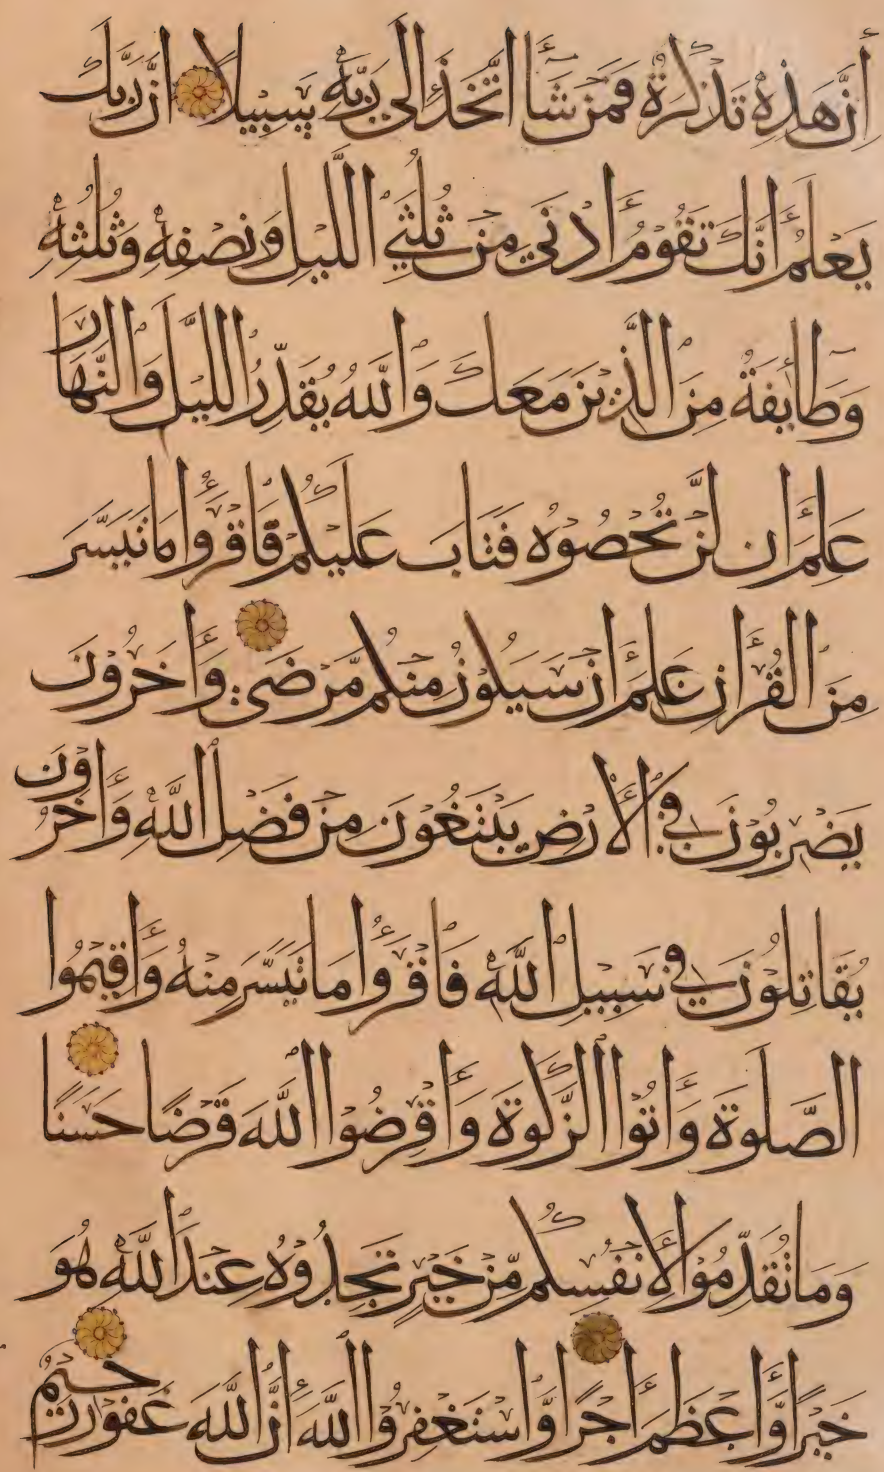 إِنَّ هَذِهِ تَذْكِرَةٌ فَمَنْ شَآءَ اتَّخَذَ إِلَى رَبِّهِ سَبِيلًا إِنَّ رَبَّكَ
يَعْلَمُ أَنَّكَ تَقُومُ أَدْنَى مِنْ ثُلُثَيِ اللَّيْلِ وَنِصْفِهِ وَثُلُثِهِ
وَطَآئِفَةٌ مِنَ الَّذِينَ مَعَكَ وَاللَّهُ يُقَدِّرُ اللَّيْلَ وَالنَّهَارَ
عَلِمَ أَنْ لَنْ تُحْصُوهُ فَتَابَ عَلَيْكُمْ فَاقْرَؤُا مَا تَيَسَّرَ
مِنَ الْقُرْأَنِ عَلِمَ أَنْ سَيَكُونُ مِنْكُمْ مَرْضَى وَأَخَرُونَ
يَضْرِبُونَ فِي الْأَرْضِ يَبْتَغُونَ مِنْ فَضْلِ اللَّهِ وَأَخَرُونَ
يُقَاتِلُونَ فِي سَبِيلِ اللَّهِ فَاقْرَؤُا مَا تَيَسَّرَ مِنْهُ وَأَقِيمُوا
الصَّلَوةَ وَأَتُوا الزَّكَوةَ وَأَقْرِضُوا اللَّهَ قَرْضًا حَسَنًا
وَمَا تُقَدِّمُوا لِأَنْفُسِكُمْ مِنْ خَيْرٍ تَجِدُوهُ عِنْدَ اللَّهِ هُوَ
خَيْرًا وَأَعْظَمَ أَجْرًا وَاسْتَغْفِرُوا اللَّهَ إِنَّ اللَّهَ غَفُورٌ رَحِيمٌ